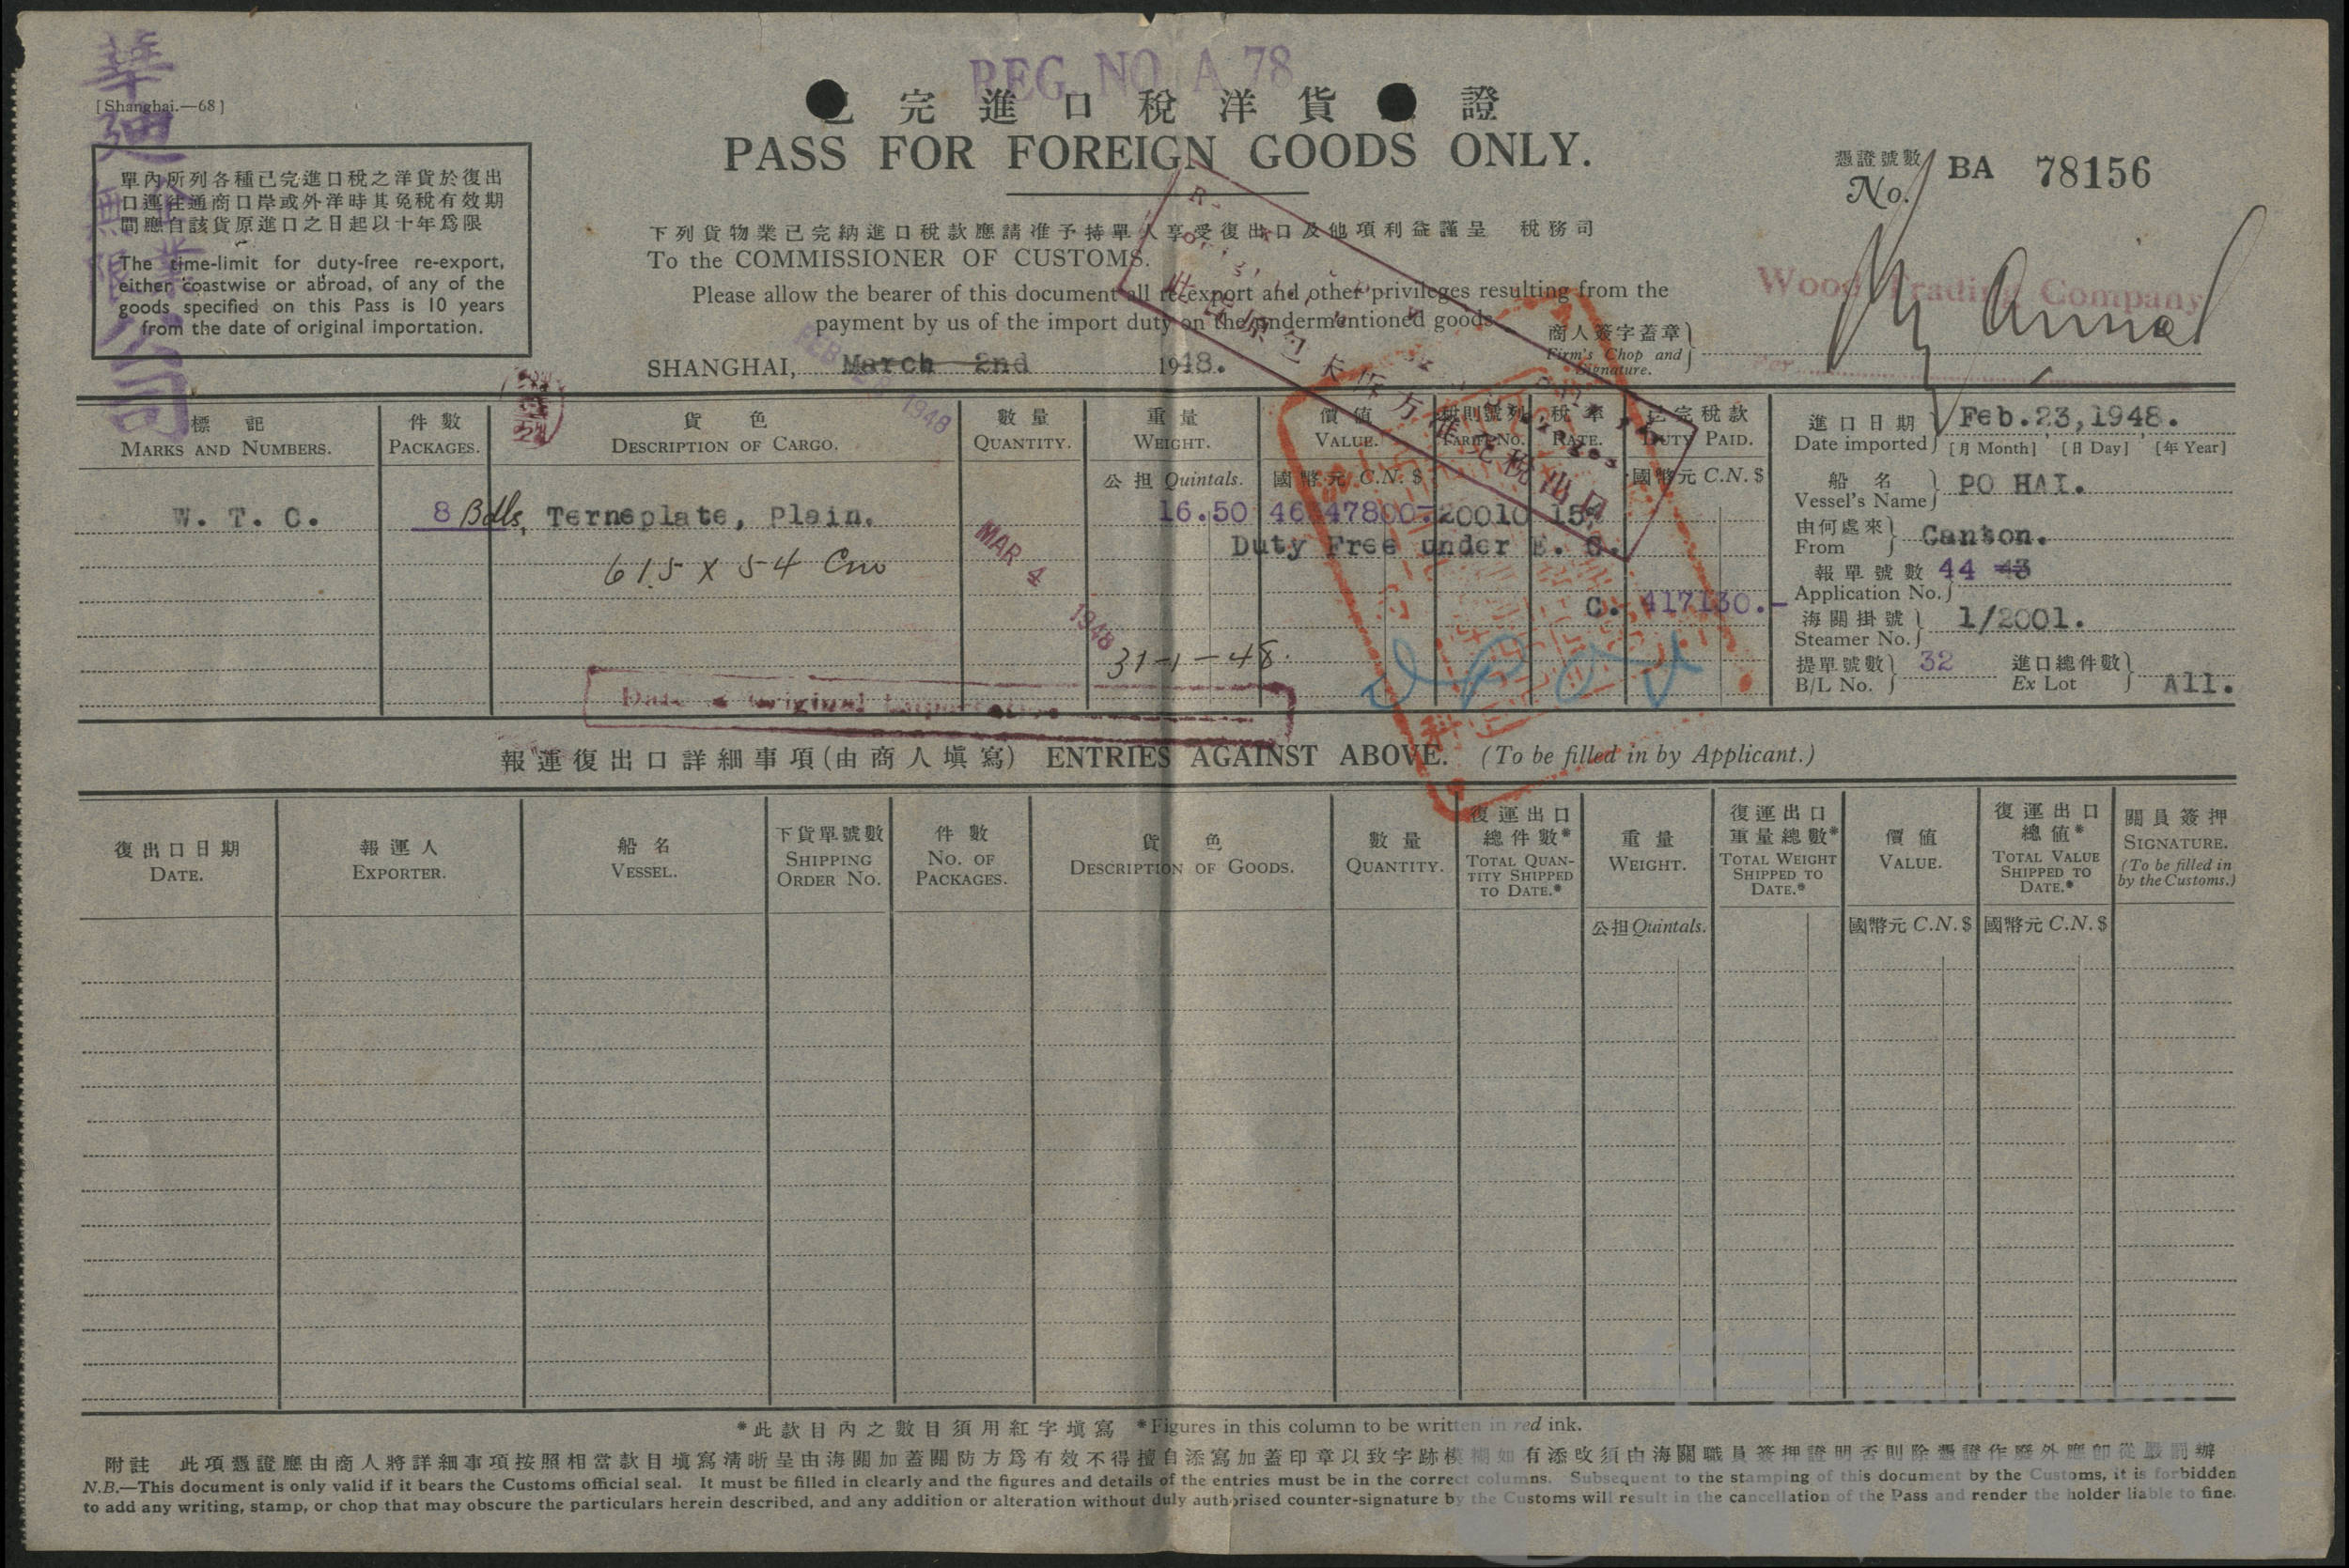 REG. NO. A 78
[Shanghai.—68]
完進口稅洋貨 證
PASS FOR FOREIGN GOODS ONLY.
憑證號數
No. BA 78156
單內所列各種已完進口稅之洋貨於復出
口運往通商口岸或外洋時其免稅有效期
間應自該貨原進口之日起以十年爲限
The time-limit for duty-free re-export,
either coastwise or abroad, of any of the
goods specified on this Pass is 10 years
from the date of original importation.
華迪企業無限公司
下列貨物業已完納進口稅款應請准予持單人享受復出口及他項利益謹呈 稅務司
To the COMMISSIONER OF CUSTOMS.
Please allow the bearer of this document all re-export and other privileges resulting from the
payment by us of the import duty on the undermentioned goods.
SHANGHAI, March 2nd 1948.
商人簽字蓋章
Firm's Chop and
Signature.
Wood Trading Company
Per
標記 件數 貨色 數量 重量 價值 稅則號列 稅率 已完稅款
MARKS AND NUMBERS. PACKAGES. DESCRIPTION OF CARGO. QUANTITY. WEIGHT. VALUE. TARIFF NO. RATE. DUTY PAID.
公担 Quintals. 國幣元 C.N.$ 國幣元 C.N.$
W. T. C. 8 Bdls, Terneplate, Plain. 16.50 20010 15%
Duty Free under E. C.
61.5 X 54 Cm
MAR 4 1948
C. 417130.-
31-1-48.
Date of Original Importation
進口日期
Date imported Feb.23,1948.
[月 Month] [日 Day] [年 Year]
船名
Vessel's Name PO HAI.
由何處來
From Canton.
報單號數
Application No. 44 43
海關掛號
Steamer No. 1/2001.
提單號數 進口總件數
B/L No. 32 Ex Lot All.
報運復出口詳細事項(由商人填寫) ENTRIES AGAINST ABOVE. (To be filled in by Applicant.)
復出口日期
DATE.
報運人
EXPORTER.
船名
VESSEL.
下貨單號數
SHIPPING
ORDER NO.
件數
NO. OF
PACKAGES.
貨色
DESCRIPTION OF GOODS.
數量
QUANTITY.
復運出口
總件數*
TOTAL QUAN-
TITY SHIPPED
TO DATE.*
重量
WEIGHT.
公担 Quintals.
復運出口
重量總數*
TOTAL WEIGHT
SHIPPED TO
DATE.*
價值
VALUE.
國幣元 C.N.$
復運出口
總值*
TOTAL VALUE
SHIPPED TO
DATE.*
國幣元 C.N.$
關員簽押
SIGNATURE.
(To be filled in
by the Customs.)
*此款目內之數目須用紅字填寫 *Figures in this column to be written in red ink.
附註 此項憑證應由商人將詳細事項按照相當款目填寫清晰呈由海關加蓋關防方爲有效不得擅自添寫加蓋印章以致字跡模糊如有添改須由海關職員簽押證明否則除憑證作廢外應卽從嚴罰辦
N.B.—This document is only valid if it bears the Customs official seal. It must be filled in clearly and the figures and details of the entries must be in the correct columns. Subsequent to the stamping of this document by the Customs, it is forbidden
to add any writing, stamp, or chop that may obscure the particulars herein described, and any addition or alteration without duly authorised counter-signature by the Customs will result in the cancellation of the Pass and render the holder liable to fine.